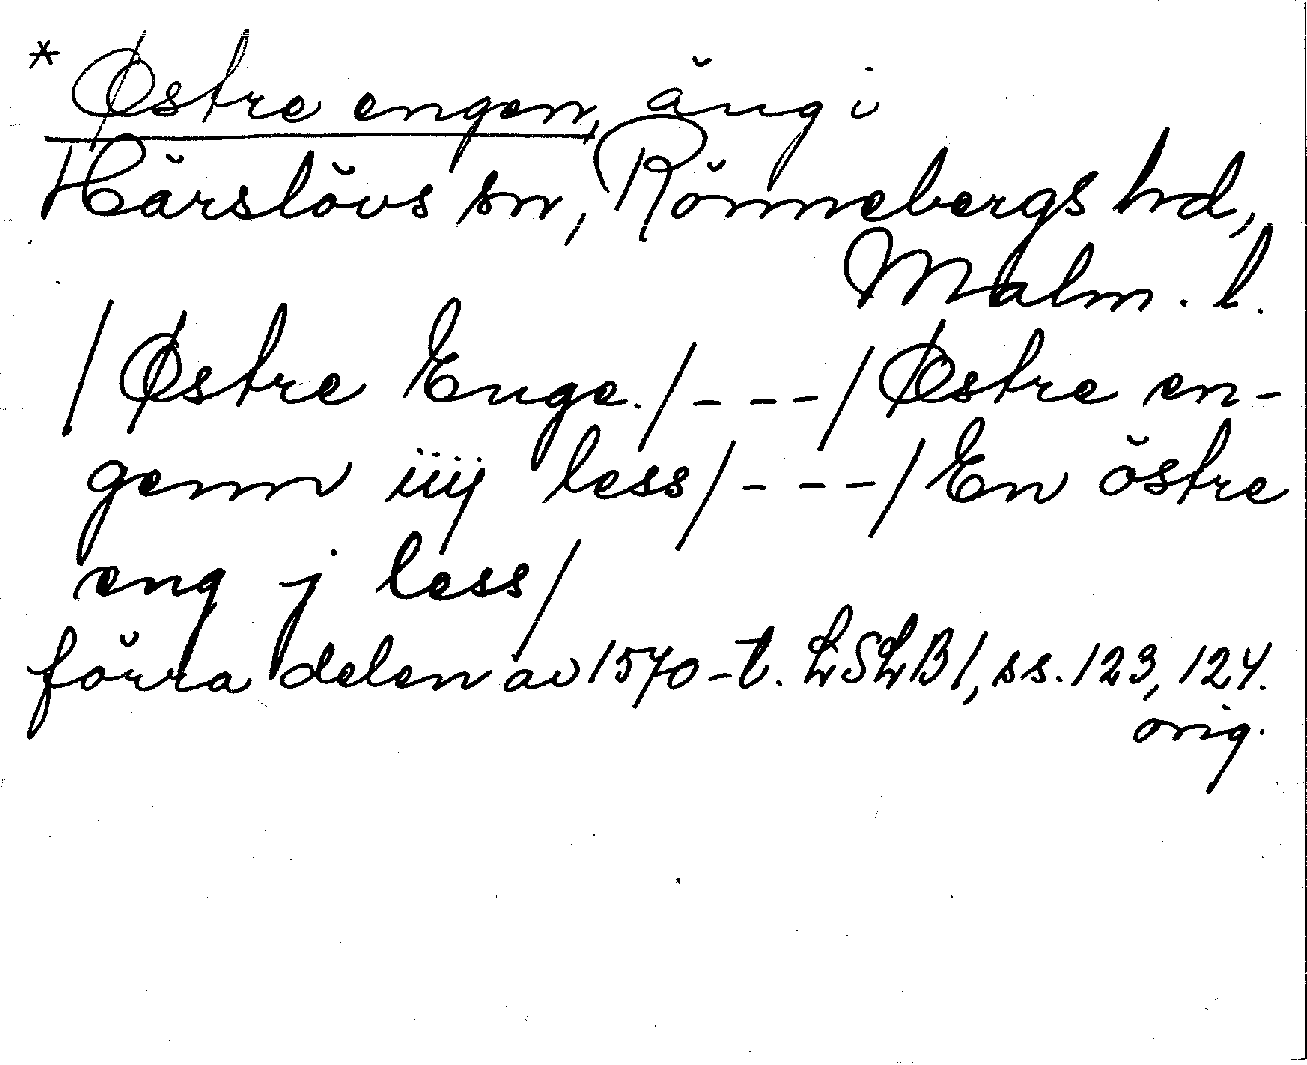 * Østre engen, äng i
Härslövs sn, Rönnebergs hd,
Malm. l.
/Østre Enge./---/Østre en-
genn iiij less/---/En östre
eng j less/
förra delen av 1570-t. LSLB1, ss. 123, 124.
orig.